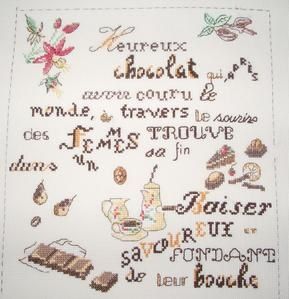 Heureux
chocolat qui, APRÈS
avoir couru le
monde, à travers le sourire
des FEMMES TROUVE
dans un sa fin
Baiser
SAVOUREUX et
FONDANT
de leur bouche